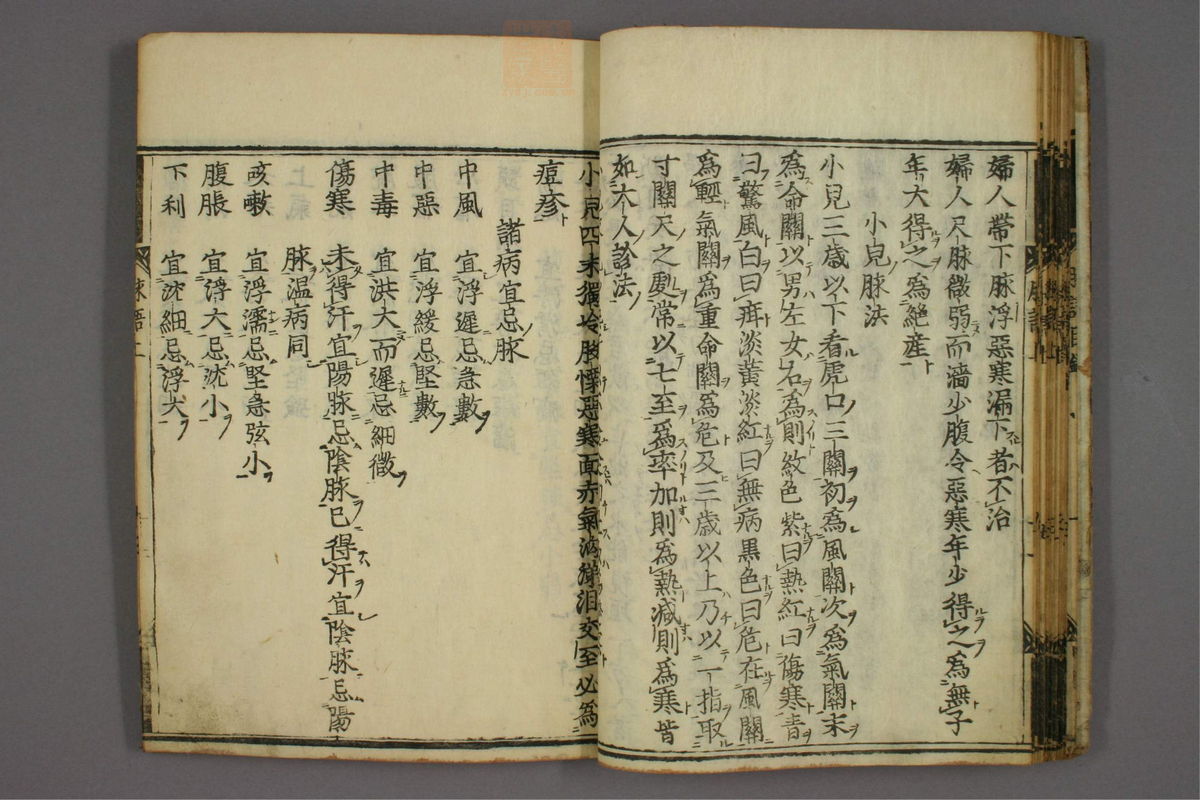 婦人帶下脉浮惡寒漏下者不治
婦人尺脉微弱而濇少腹令惡寒年少得之爲無子
年大得之爲絶産
小兒脉法
小兒三歳以下看虎口三關初爲風關次爲氣關末
爲命關以男左女右爲則紋色紫曰熱紅曰傷寒青
曰驚風白曰疳淡黄淡紅曰無病黒色曰危在風關
爲輕氣關爲重命關爲危及三歳以上乃以一指取
寸關尺之處常以七至爲率加則爲熱減則爲寒皆
如大人診法
小兒四末獨冷股慄惡寒面赤氣涌涕泪交至必爲
痘疹
諸病宜忌脉
中風 宜浮遲忌急數
中惡 宜浮緩忌堅數
中毒 宜洪大而遲忌細微
傷寒 未得汗宜陽脉忌陰脉已得汗宜陰脉忌陽
脉温病同
咳嗽 宜浮濡忌堅急弦小
腹脹 宜浮大忌沈小
下利 宜沈細忌浮大
脉語上